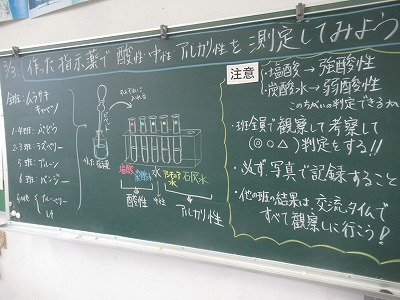 3/3 作った指示薬で酸性・中性・アルカリ性を測定してみよう
全班:ムラサキ
キャベツ
1・4班:ぶどう
2.3班:ラズベリー
5班:プルーン
6班:パンジー
ピペット
それぞれに
入れる
塩酸
炭酸水
水
石灰水
酸性
中性
アルカリ性
注意
・塩酸→強酸性
・炭酸水→弱酸性
このちがいの判定できるか
・班全員で観察して考察して
(◎○△)判定をする!!
・必ず、写真で記録すること
・他の班の結果は、交流タイムで
すべて観察しに行こう!